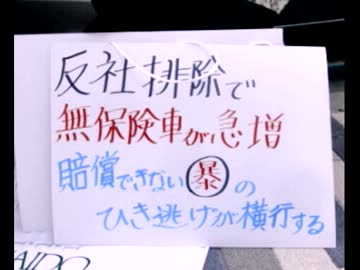 反社排除で
無保険車が急増
賠償できない暴の
ひき逃げが横行する
AIDO